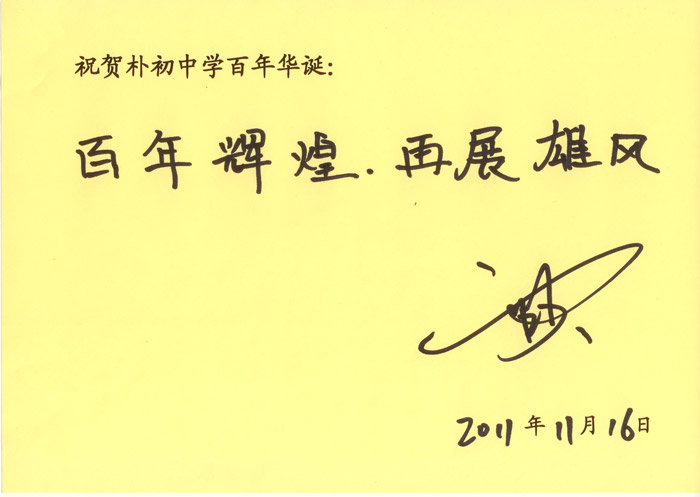 祝贺朴初中学百年华诞:
百年辉煌.再展雄风
2011年11月16日